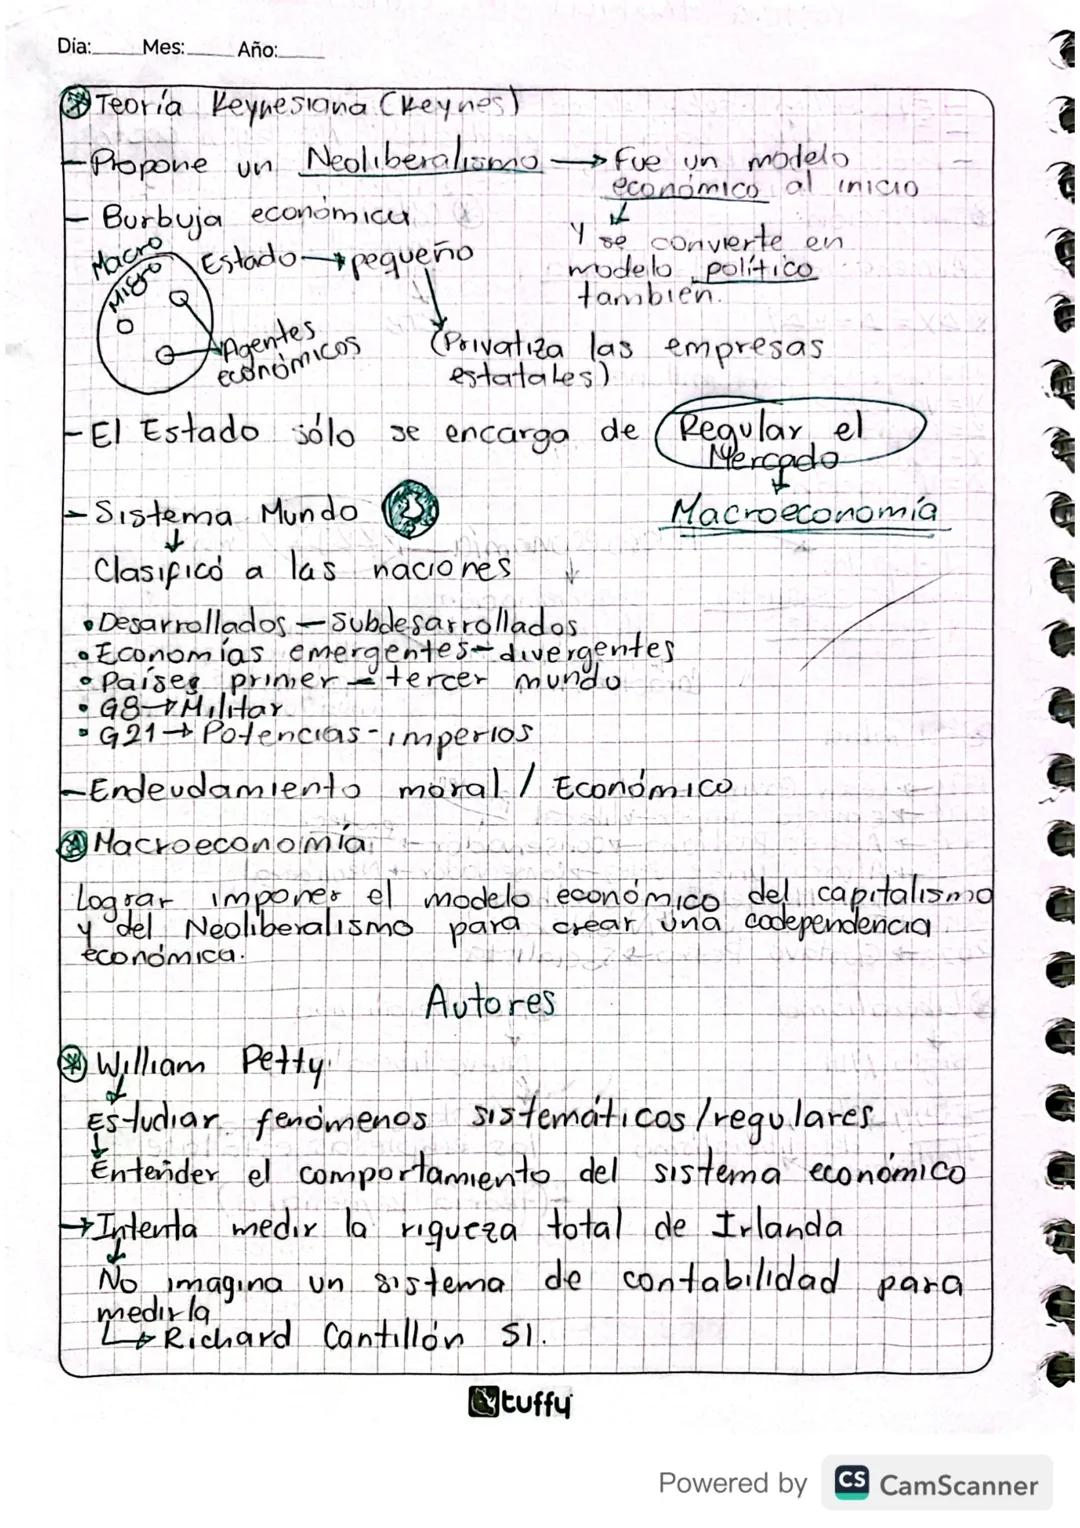 Día:____ Mes:____ Año:____
Teoría Keynesiana (Keynes)
- Propone un Neoliberalismo → Fue un modelo
económico al inicio
↓
Y se convierte en
modelo político
también.
- Burbuja económica
Macro
Micro
Estado → pequeño
Agentes
económicos
(Privatiza las empresas
estatales)
- El Estado sólo se encarga de Regular el
Mercado
↓
Macroeconomía
- Sistema Mundo
↓
Clasificó a las naciones
• Desarrollados - Subdesarrollados
• Economías emergentes - divergentes
• Países primer - tercer mundo
• G8 → Militar
• G21 → Potencias - imperios
- Endeudamiento moral / Económico
Macroeconomía
Lograr imponer el modelo económico del capitalismo
y del Neoliberalismo para crear una codependencia
económica.
Autores
William Petty
↓
Estudiar fenómenos sistemáticos/regulares
↓
Entender el comportamiento del sistema económico
→ Intenta medir la riqueza total de Irlanda
↓
No imagina un sistema de contabilidad para
medirla
↳ Richard Cantillón SI.
tuffy
Powered by CS CamScanner